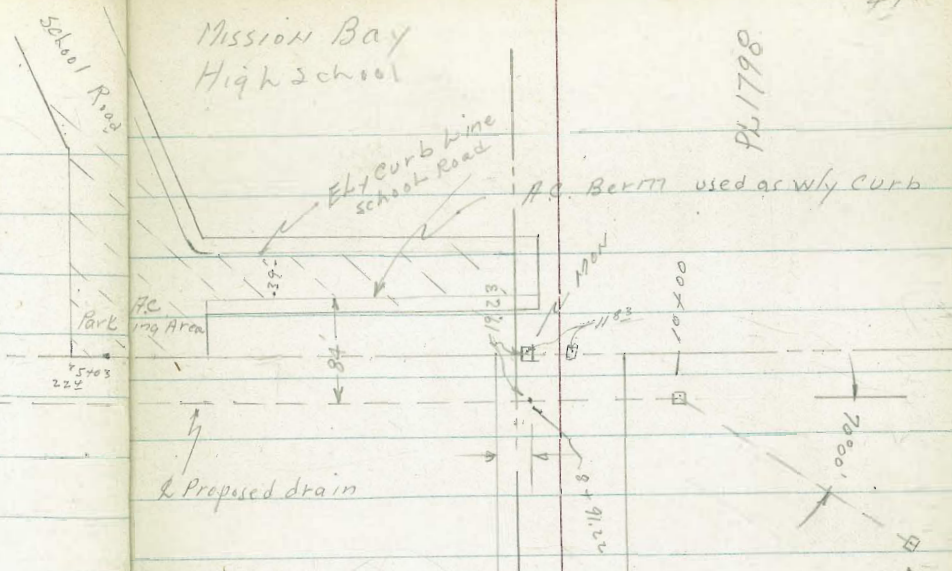 School Road
Mission Bay
High School
PL 1798
Ely Curb Line
School Road
A.C. Berm used as w/ly curb
.39'
A.C.
Parking Area
84'
10+00
5+03
70°00'
℄ Proposed drain
8+91.22